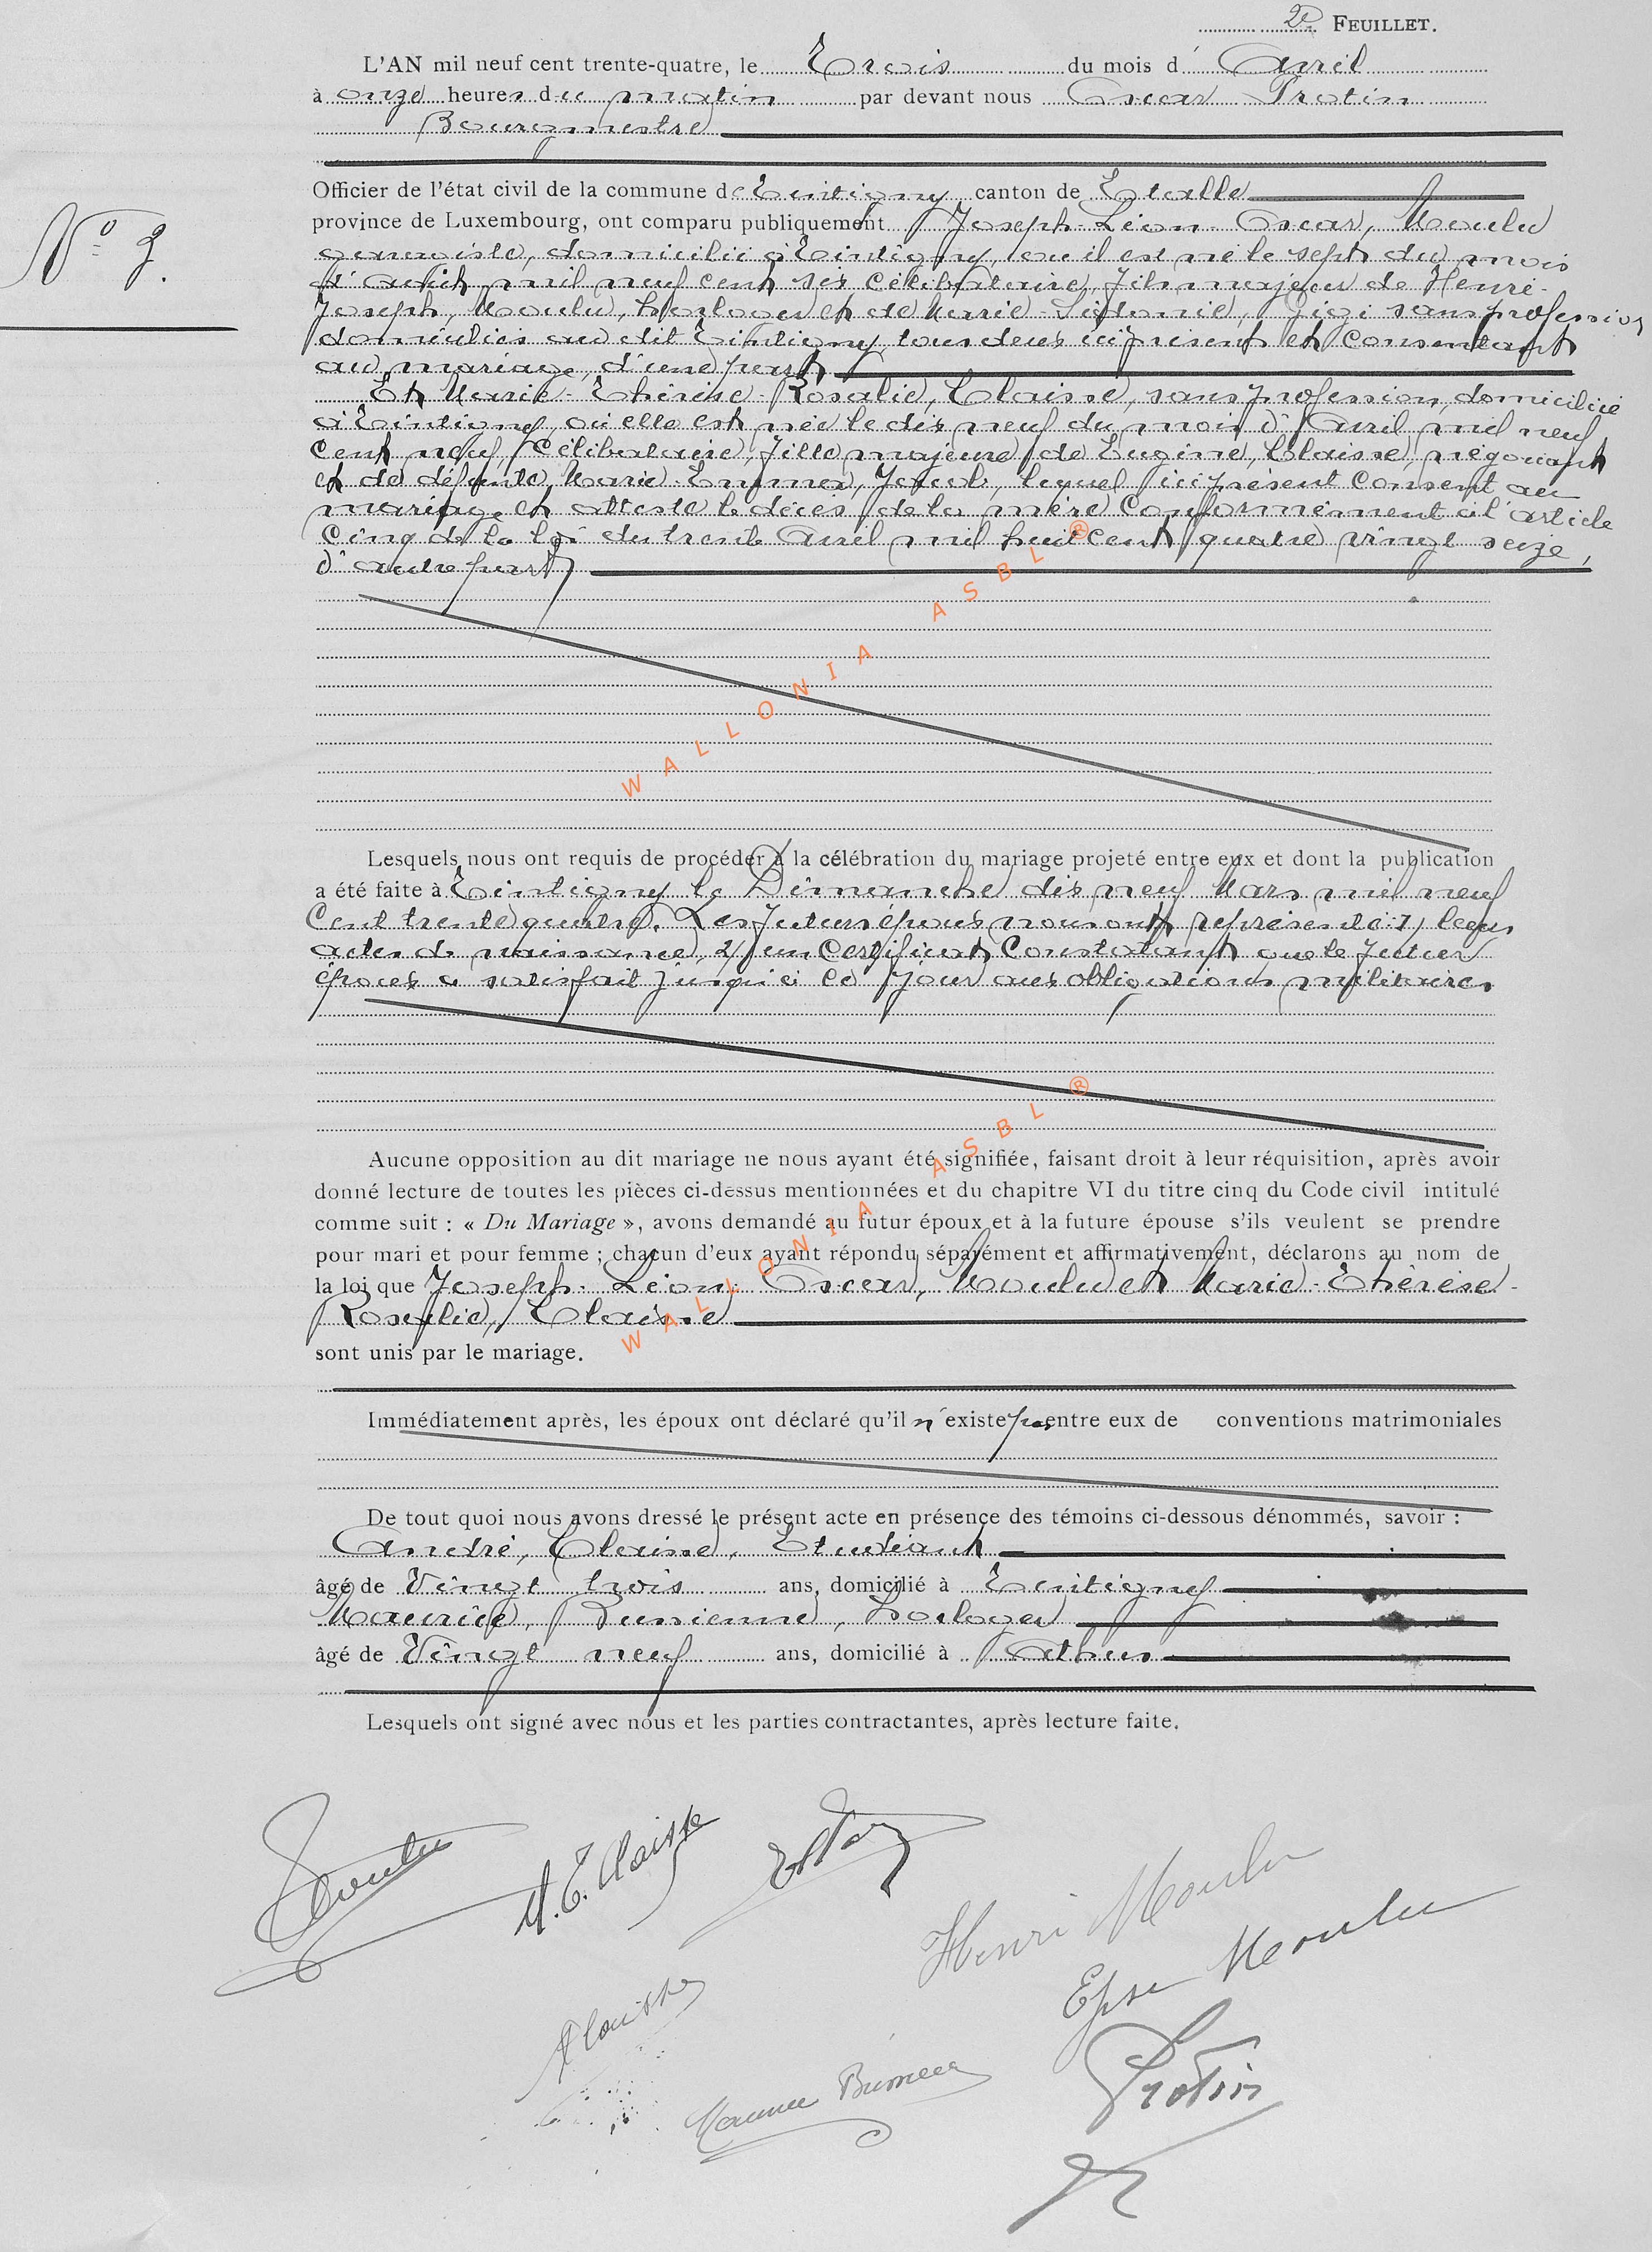 2e FEUILLET.
L'AN mil neuf cent trente-quatre, le Trois du mois d' Avril
à onze heures du matin par devant nous Oscar Protin
Bourgmestre
Officier de l'état civil de la commune de Tintigny canton de Etalle
province de Luxembourg, ont comparu publiquement Joseph-Léon-Oscar, Moulu
garagiste, domicilié à Tintigny, où il est né le sept du mois
d'août mil neuf cent six célibataire, fils majeur de Henri-
Joseph, Moulu, horloger et de Marie-Sidonie, Gigi sans profession
domiciliés au dit Tintigny tous deux ici présent et consentant
au mariage, d'une part
Et Marie-Thérèse-Rosalie, Claisse, sans profession, domiciliée
à Tintigny, où elle est née le dix neuf du mois d'Avril mil neuf
cent neuf, célibataire, fille majeure de Eugène, Claisse, négociant
et de défunte Marie-Emma, Jacob, lequel ici présent consent au
mariage et atteste le décès de la mère conformément à l'article
cinq de la loi du trente Avril mil huit cent quatre vingt seize,
d'autre part
Lesquels nous ont requis de procéder à la célébration du mariage projeté entre eux et dont la publication
a été faite à Tintigny le Dimanche dix neuf Mars mil neuf
cent trente quatre. Les futurs époux nous ont représenté: 1/ leurs
actes de naissance, 2/ un certificat constatant que le futur
époux a satisfait jusqu'à ce jour aux obligations militaires
Aucune opposition au dit mariage ne nous ayant été signifiée, faisant droit à leur réquisition, après avoir
donné lecture de toutes les pièces ci-dessus mentionnées et du chapitre VI du titre cinq du Code civil intitulé
comme suit : « Du Mariage », avons demandé au futur époux et à la future épouse s'ils veulent se prendre
pour mari et pour femme ; chacun d'eux ayant répondu séparément et affirmativement, déclarons au nom de
la loi que Joseph-Léon-Oscar, Moulu et Marie-Thérèse-
Rosalie, Claisse
sont unis par le mariage.
Immédiatement après, les époux ont déclaré qu'il n'existe pas entre eux de conventions matrimoniales
De tout quoi nous avons dressé le présent acte en présence des témoins ci-dessous dénommés, savoir :
André, Claisse, Etudiant
âgé de Vingt trois ans, domicilié à Tintigny
Maurice, horloger
âgé de Vingt neuf ans, domicilié à Athus
Lesquels ont signé avec nous et les parties contractantes, après lecture faite.
Moulu
M.T. Claisse
Henri Moulu
Epse Moulu
AClaisse
Maurice
Protin
WALLONIA ASBL ®
WALLONIA ASBL ®